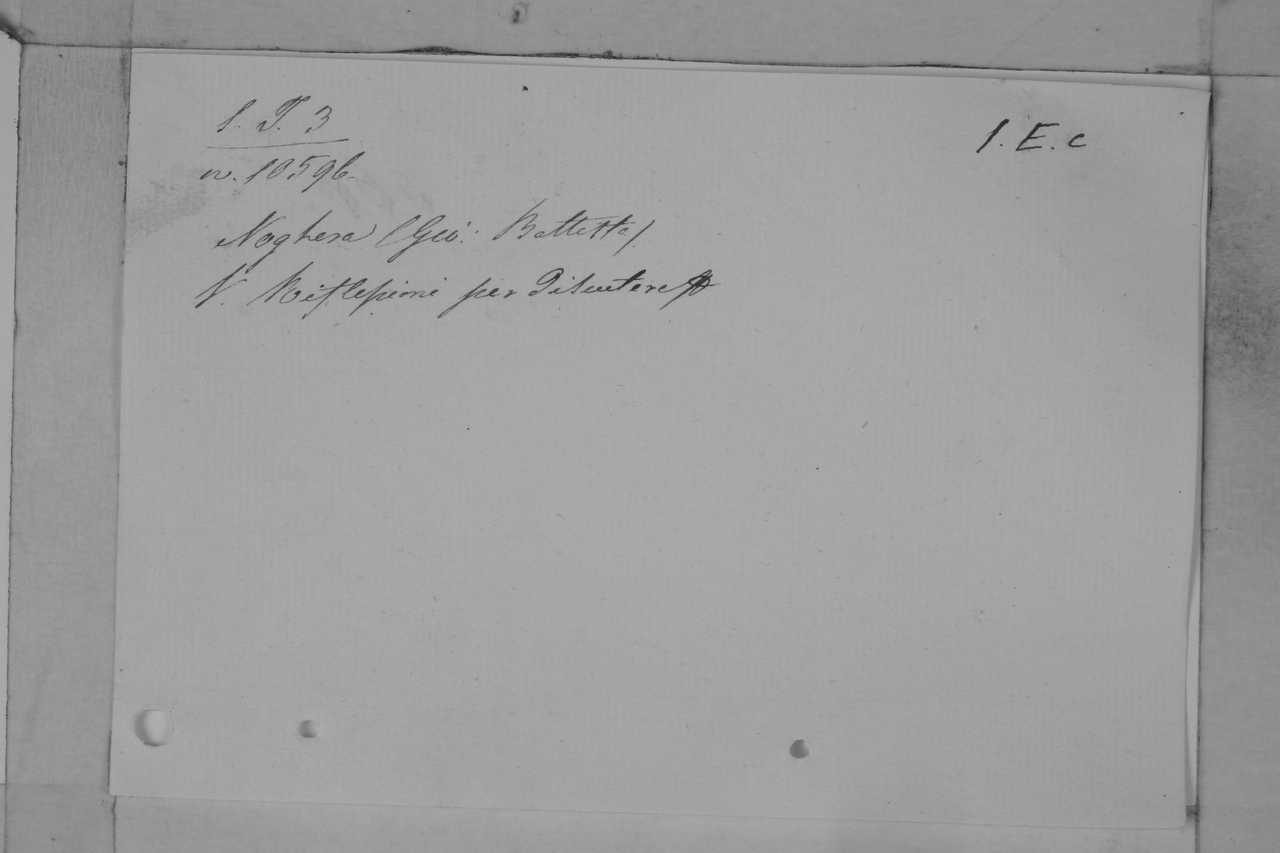 S. T. 3
n. 10596.
Noghera (Gio: Battista)
V. Riflessioni per Discutere
1. E. c